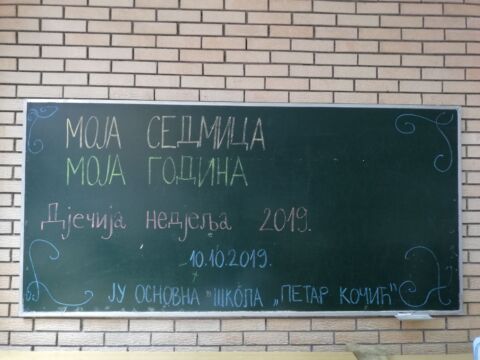 МОЈА СЕДМИЦА
МОЈА ГОДИНА
Дјечија недјеља 2019.
10.10.2019.
ЈУ ОСНОВНА ШКОЛА „ПЕТАР КОЧИЋ"